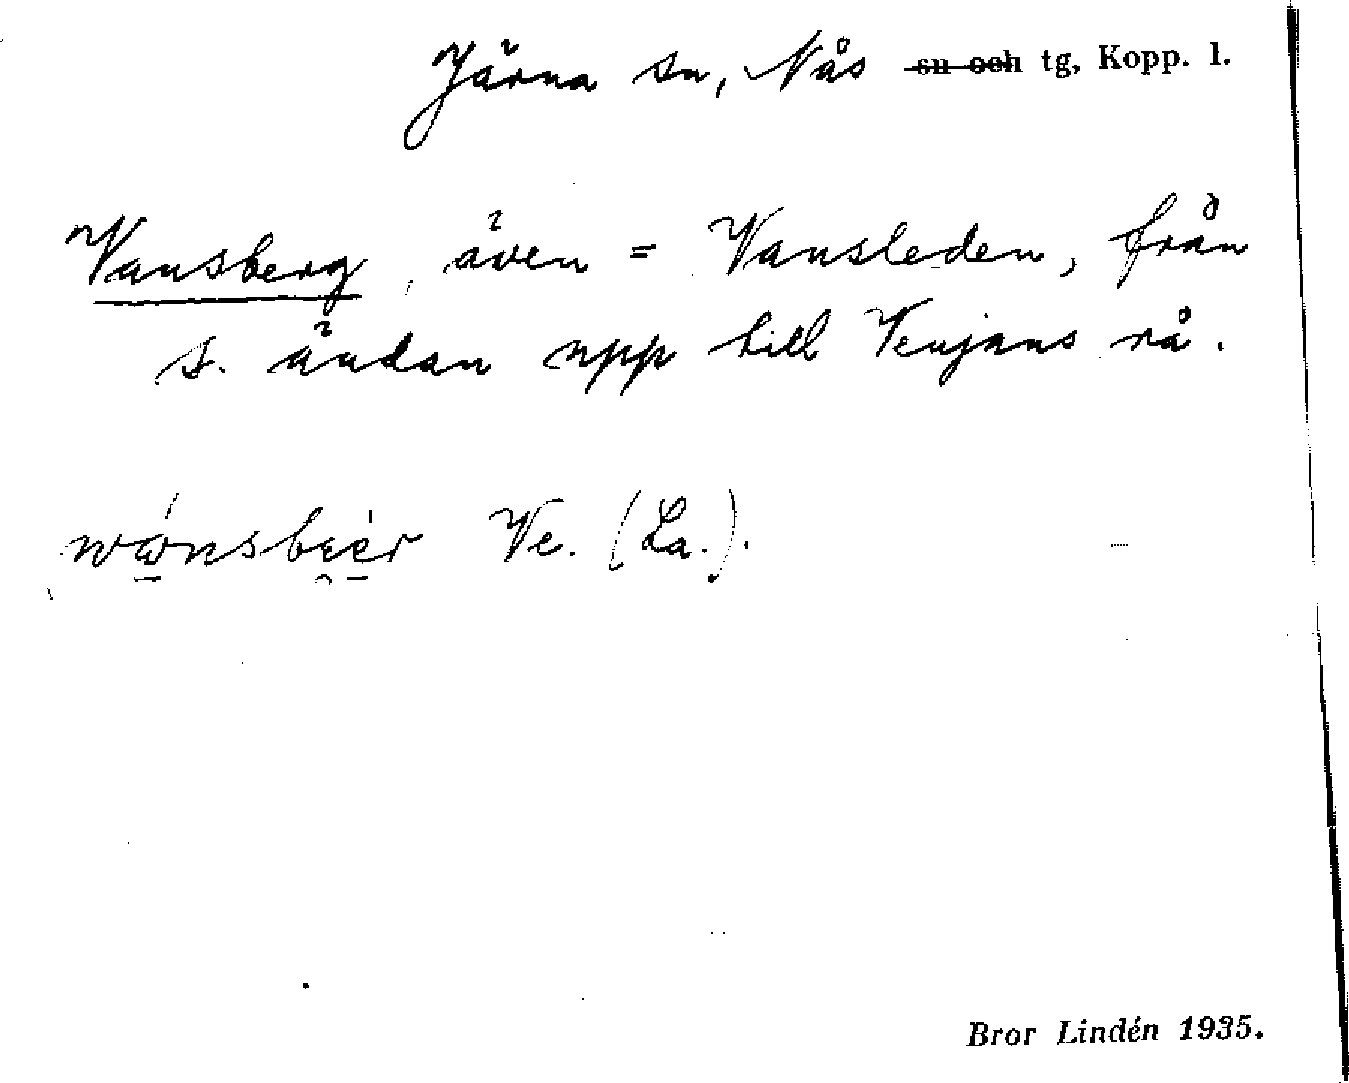 Järna sn, Nås sn och tg, Kopp. l.
Vansberg, även = Vansleden, från
s. ändan upp till Venjans rå.
Ve. (La.).
Bror Lindén 1935.